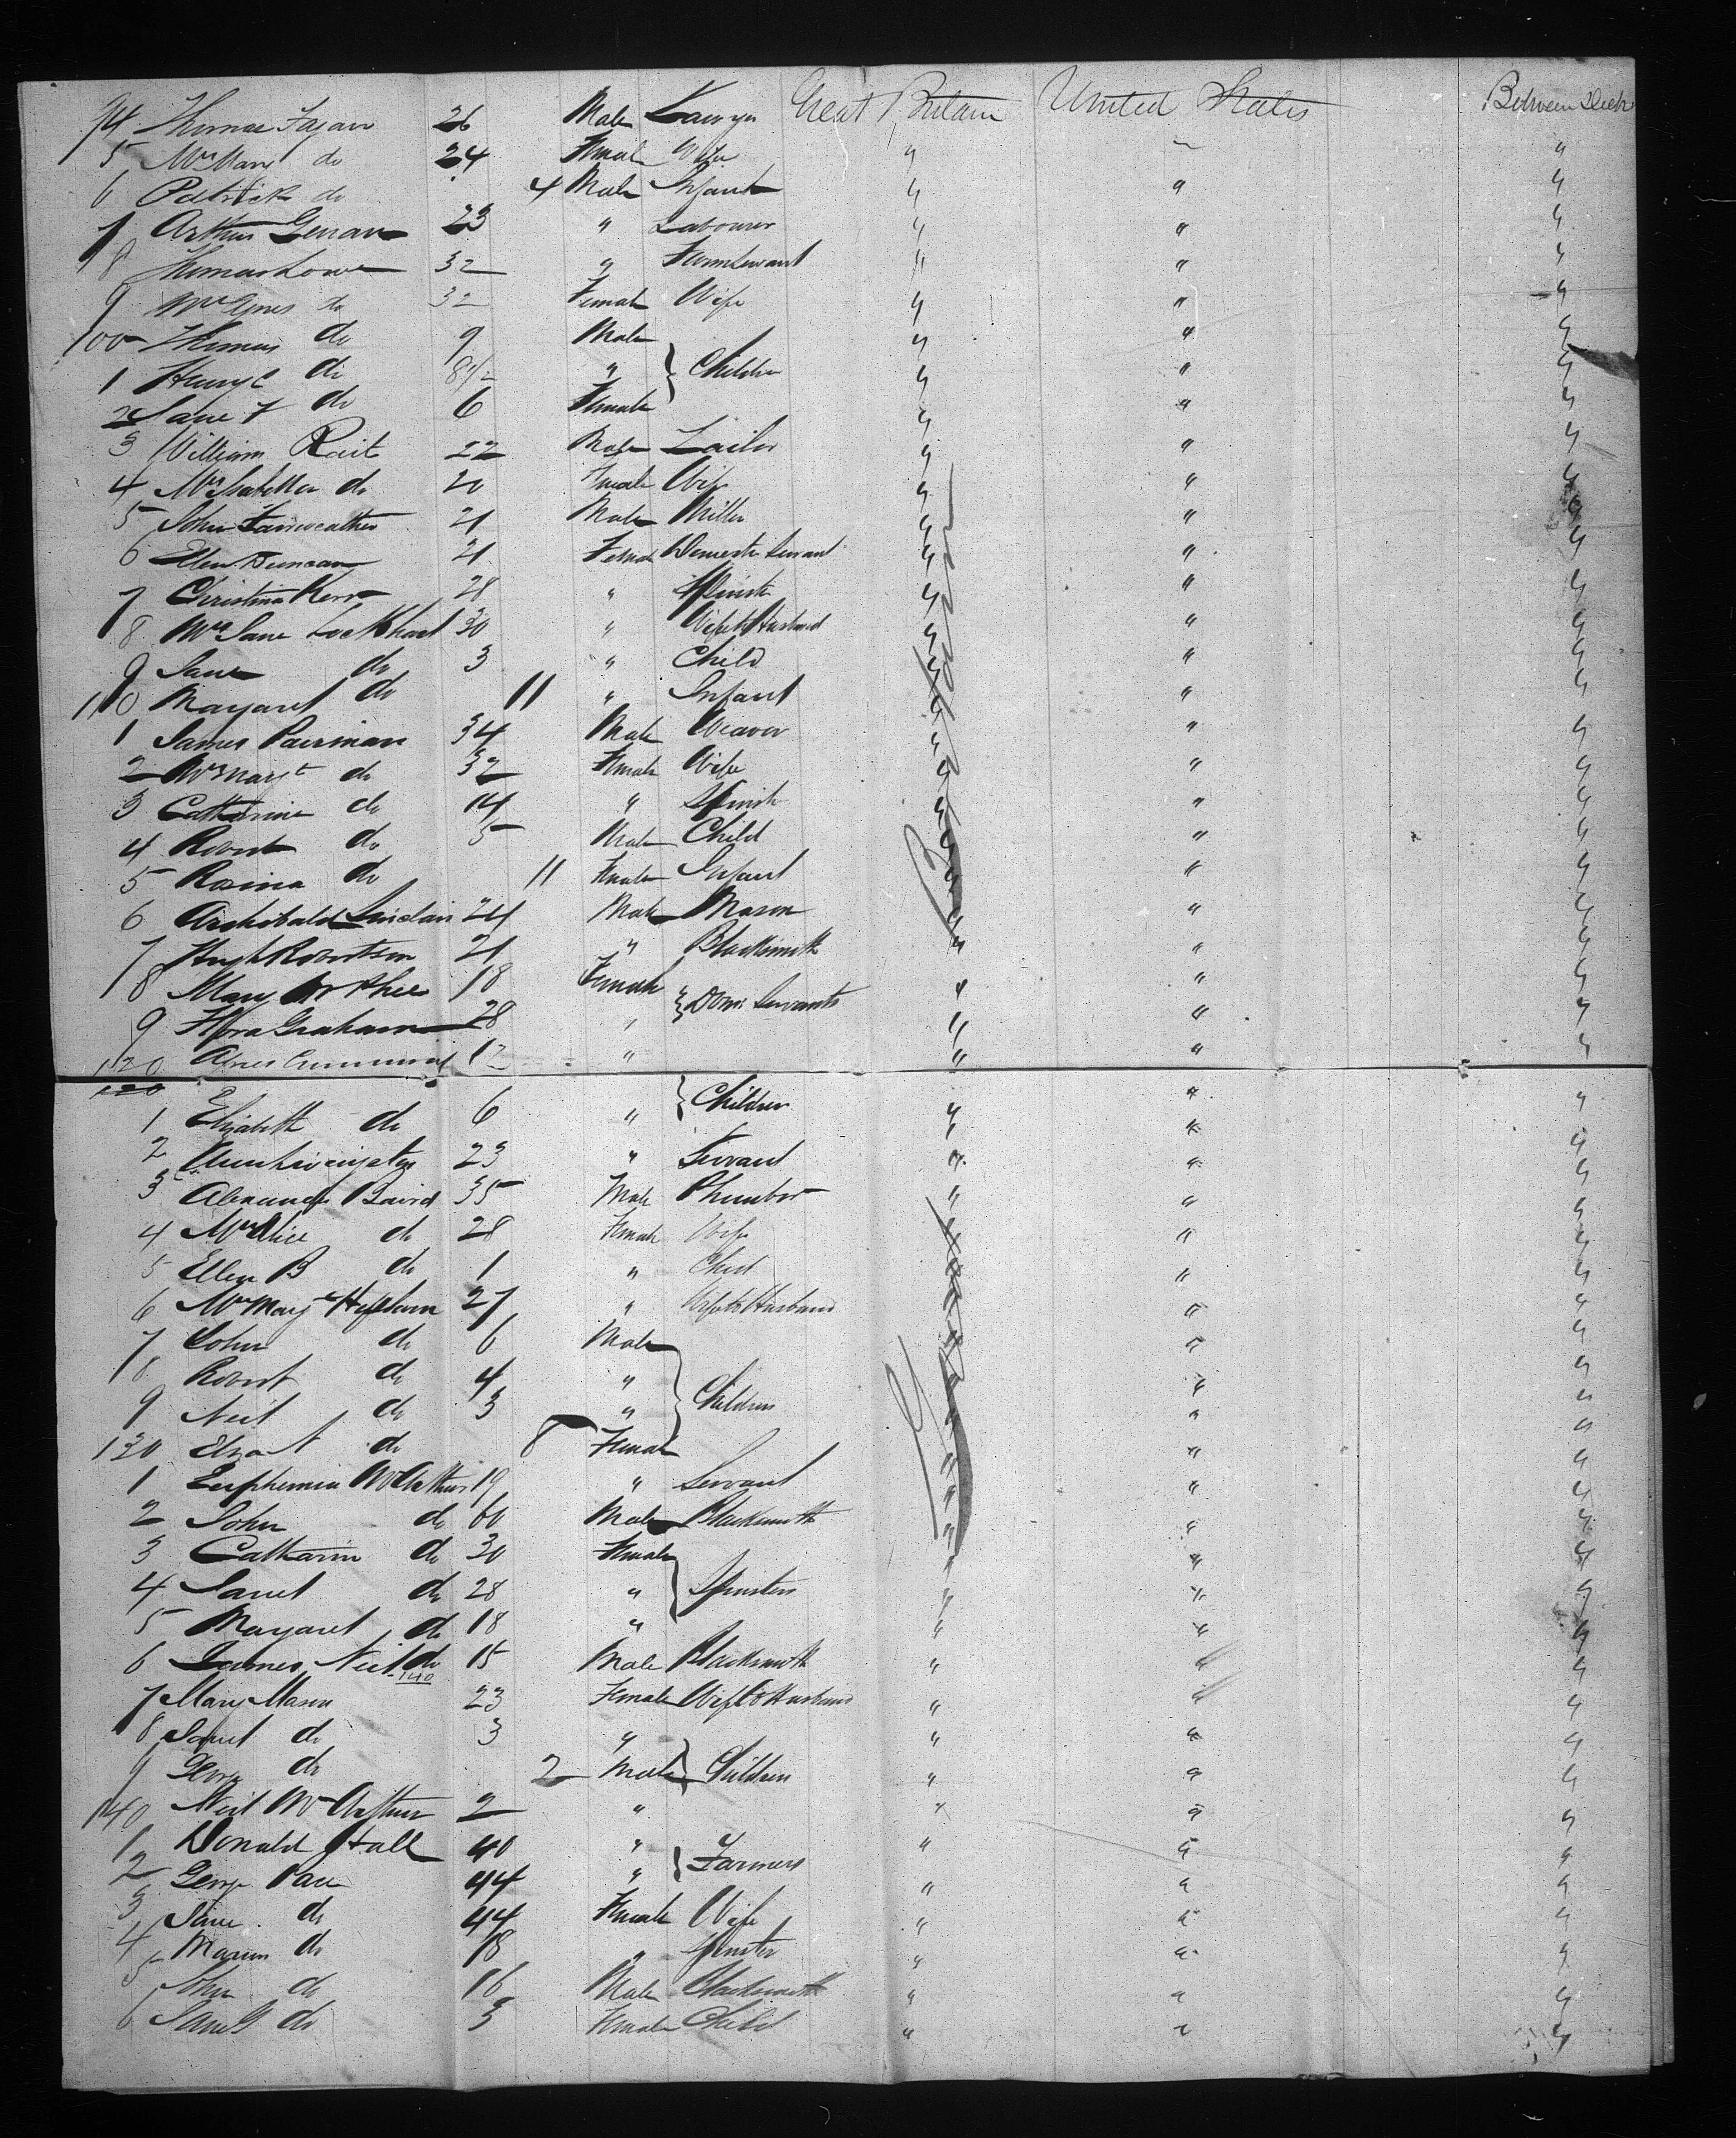 94 Thomas Fagan 26 Male Lawyer Great Britain United States Between Deck
5 Mrs Mary do 24 Female Wife " " "
6 Patrick do 4 Male Infant " " "
7 Arthur 23 " Labourer " " "
8 Thomas Lowe 32 " Farm Servant " " "
9 Mrs Agnes do 32 Female Wife " " "
100 Thomas do 9 Male " " "
1 Henry C do 8½ " } Children " " "
2 Jane F do 6 Female " " "
3 William Rait 22 Male Tailor " " "
4 Mrs Isabella do 20 Female Wife " " "
5 John Fairweather 21 Male Miller " " "
6 Ellen Duncan 21 Female Domestic Servant " " "
7 Christina Kerr 28 " Spinster " " "
8 Mrs Jane Lockhart 30 " Wife to Husband " " "
9 Jane do 3 " Child " " "
110 Margaret do 11 " Infant " " "
1 James Pairman 34 Male Weaver " " "
2 Mrs Margt do 32 Female Wife " " "
3 Catharine do 14 " Spinstr " " "
4 Robert do 5 Male Child " " "
5 Rosina do 11 Female Infant " " "
6 Archibald Sinclair 24 Male Mason " " "
7 Hugh Robertson 21 " Blacksmith " " "
8 Mary McPhee 18 Female " " "
9 Flora Graham 28 " } Dom: Servants " " "
120 Agnes 12 " " " "
120 } Children
1 Elizabeth do 6 " " " "
2 Ann Livingston 23 " Servant " " "
3 Alexander Baird 35 Male Plumber " " "
4 Mrs Alice do 28 Female Wife " " "
5 Ellen B do 1 " Child " " "
6 Mrs Margt 27 " Wife to Husband " " "
7 John do 6 Male " " "
8 Robert do 4 " " " "
9 Neil do 3 " } Children " " "
130 do 8 Female " " "
1 Euphemia McArthur 19 " Servant " " "
2 John do 60 Male Blacksmith " " "
3 Catharin do 30 Female " " "
4 Janet do 28 " } Spinsters " " "
5 Margaret do 18 " " " "
6 James Neil do 15 Male Blacksmith " " "
140
7 Mary Mason 23 Female Wife to Husband " " "
8 Janet do 3 " " " "
9 George do 2 Male } Children " " "
140 Neil McArthur 2 " " " "
1 Donald Hall 40 " " " "
2 George 44 " } Farmers " " "
3 Jane do 44 Female Wife " " "
4 Marion do 18 " Spinster " " "
5 John do 16 Male Blacksmith " " "
6 do 3 Female Child " " "